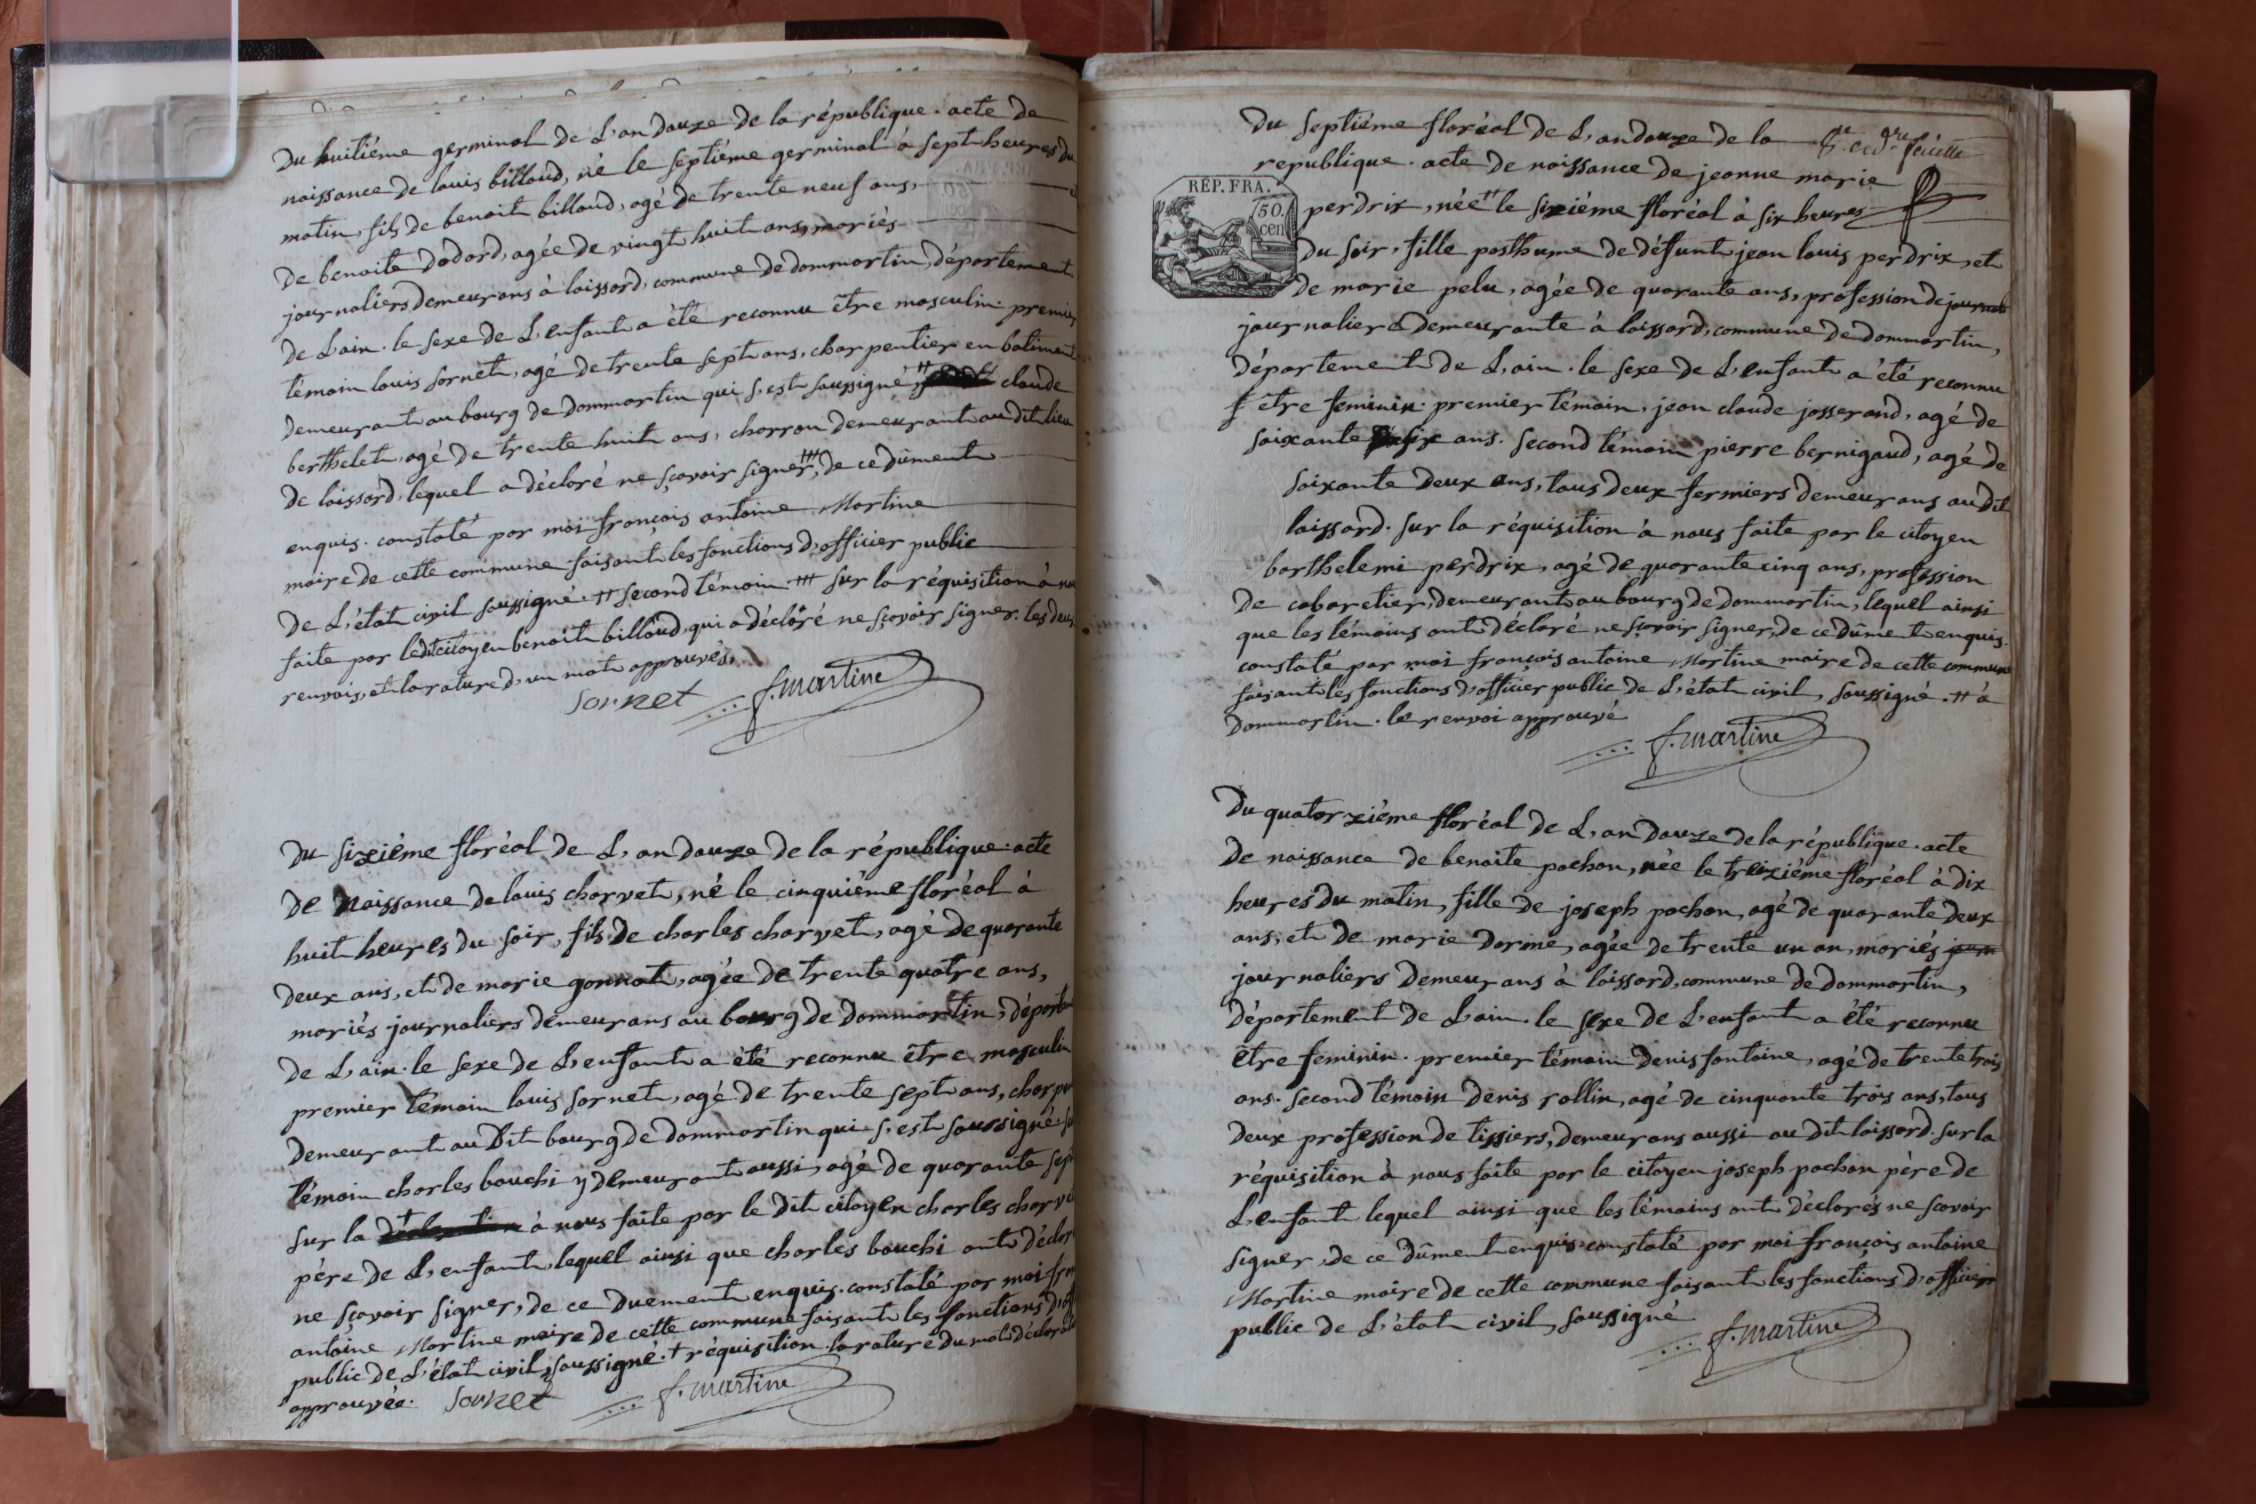 Du huitiéme germinal de L'an douze de la république. acte de
naissance de louis billoud, né le septiéme germinal à sept heures du
matin, fils de benoit billoud, agé de trente neuf ans, et
de benoite dodard, agée de vingt huit ans, mariés
journaliers demeurans à loissard, commune de dommartin, département
de L'ain. le sexe de L'enfant a été reconnu être masculin. premier
témoin louis sornet, agé de trente sept ans, charpentier en batiment
demeurant au bourg de dommartin qui s'est soussigné, # claude
berthelet, agé de trente huit ans, charron demeurant au dit lieu
de loissard, lequel a déclaré ne sçavoir signer, ## de ce dûment
enquis. constaté par moi françois antoine Martine
maire de cette commune faisant les fonctions d'officier public
de L'état civil soussigné. # second témoin ## sur la réquisition à nous
faite par ledit citoyen benoit billoud, qui a déclaré ne sçavoir signer. les deux
renvois, et la rature d'un mot approuvés.
Sornet f. martine
Du sixiéme floréal de L'an douze de la république. acte
de Naissance de louis charvet, né le cinquiéme floréal à
huit heures du soir, fils de charles charvet, agé de quarante
deux ans, et de marie gonnot, agée de trente quatre ans,
mariés journaliers demeurans au bourg de dommartin, départem
de L'ain. le sexe de L'enfant a été reconnu être masculin
premier témoin louis sornet, agé de trente sept ans, charpe
demeurant au Dit bourg de dommartin qui s'est soussigné. se
témoin charles bouchi y demeurant aussi, agé de quarante sept
sur la déclaration + à nous faite par le dit citoyen charles charvet
père de L'enfant, lequel ainsi que charles bouchi ont déclaré
ne sçavoir signer, de ce duement enquis. constaté par moi fran
antoine Martine maire de cette commune faisant les fonctions d'off
public de L'état civil, soussigné. + réquisition. la rature du mot déclarat
approuvée. Sornet f. martine
Du septiéme floréal de L'an douze de la
republique. acte de naissance de jeanne marie
REP. FRA.
50.
cen
perdrix, née # le sixiéme floréal à six heures
du soir, fille posthume de défunt jean louis perdrix, et
de marie pelu, agée de quarante ans, profession de journa
journaliere demeurante à loissard, commune de dommartin,
département de L'ain. le sexe de L'enfant a été reconnu
être feminin. premier témoin, jean claude josserand, agé de
soixante six ans. second témoin pierre bernigaud, agé de
soixante deux ans, tous deux fermiers demeurans au dit
loissard. sur la réquisition à nous faite par le citoyen
barthelemi perdrix, agé de quarante cinq ans, profession
de cabaretier, demeurant au bourg de dommartin, lequel ainsi
que les témoins ont déclaré ne sçavoir signer, de ce dûment enquis.
constaté par moi françois antoine Martine maire de cette commune
faisant les fonctions d'officier public de L'état civil, soussigné. # à
dommartin. le renvoi approuvé
f. martine
Du quatorziéme floréal de L'an douze de la république. acte
de naissance de benoite pochon, née le treiziéme floréal à dix
heures du matin, fille de joseph pochon, agé de quarante deux
ans, et de marie dorme, agée de trente un an, mariés jour
journaliers demeurans à loissard, commune de dommartin,
département de L'ain. le sexe de L'enfant a été reconnu
être feminin. premier témoin denis fontaine, agé de trente trois
ans. second témoin denis rollin, agé de cinquante trois ans, tous
deux profession de tissiers, demeurans aussi au dit loissard. sur la
réquisition à nous faite par le citoyen joseph pochon père de
L'enfant lequel ainsi que les témoins ont déclarés ne sçavoir
signer, de ce dûment enquis. constaté par moi françois antoine
Martine maire de cette commune faisant les fonctions d'officier
public de L'état civil, soussigné
f. martine